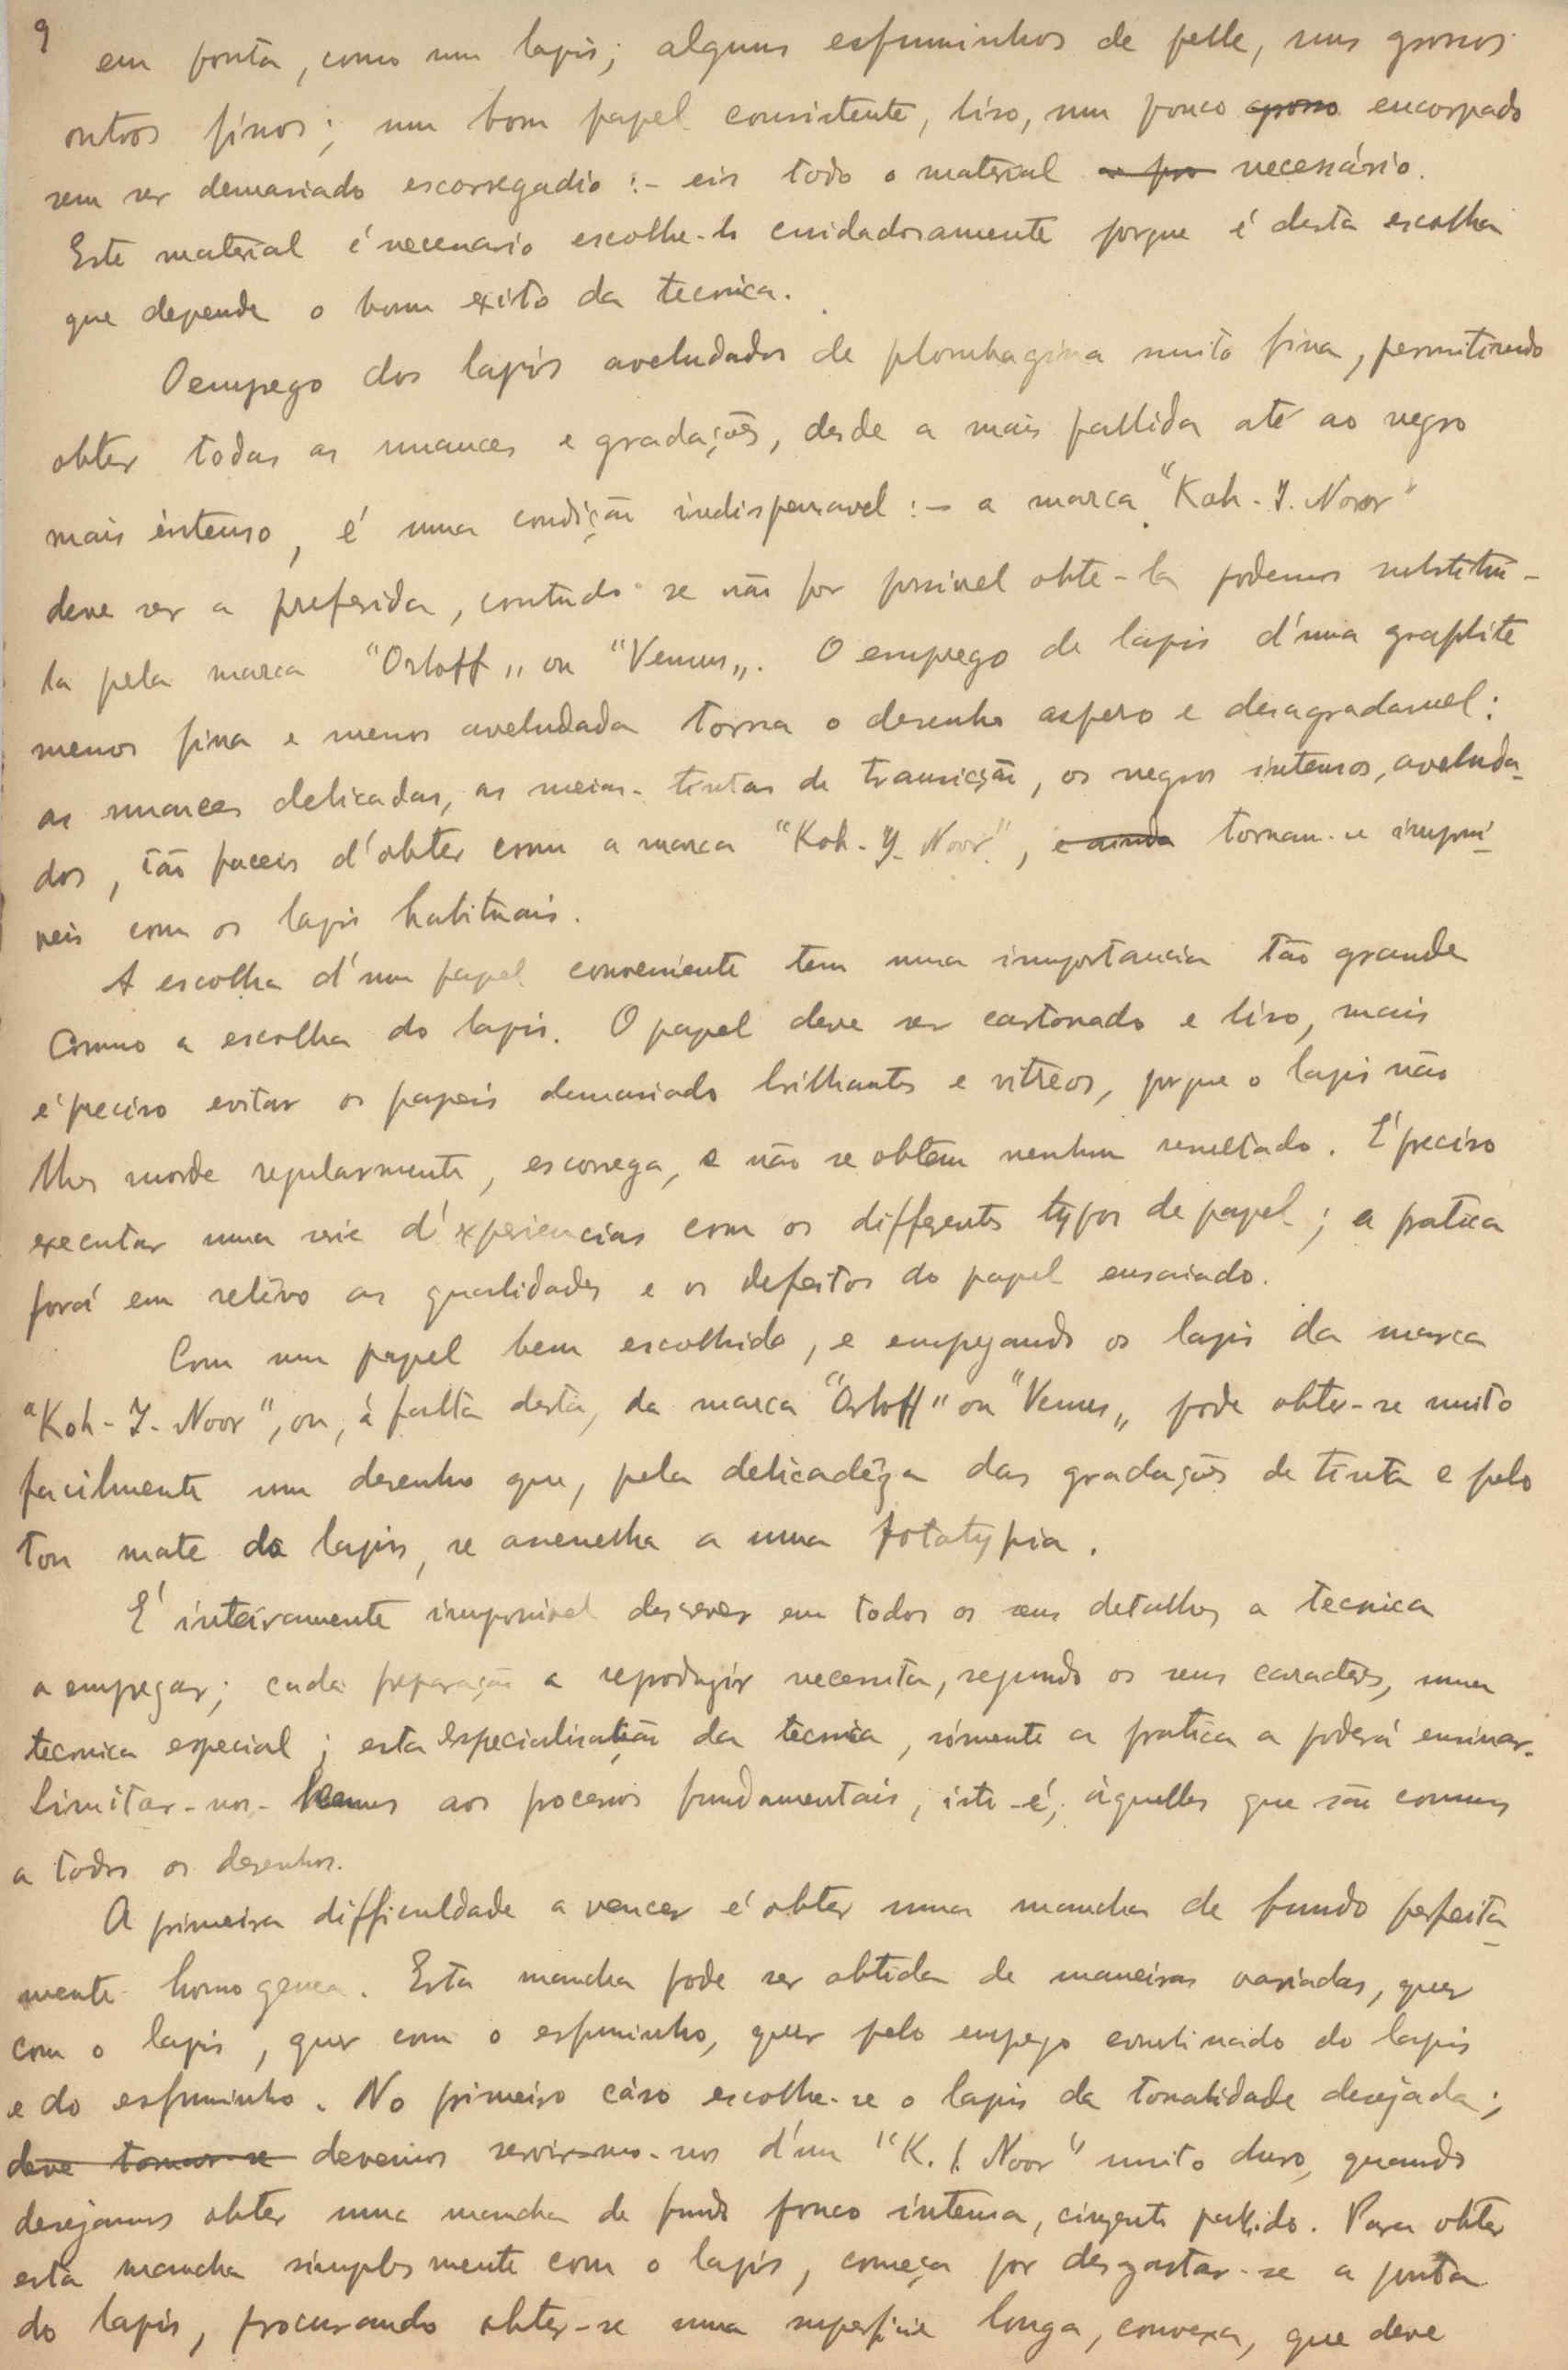 9
em ponta, como um lapis; alguns esfuminhos de pelle, uns grossos
outros finos; um bom papel consistente, liso, um pouco grosso encorpado
sem ser demasiado escorregadio :- eis todo o material necessário.
Este material é necessario escolhe-lo cuidadosamente porque é desta escolha
que depende o bom exito da tecnica.
O empego dos lapis aveludados de plombagina muito fina, permitindo
obter todas as nuances e gradações, desde a mais pallida até ao negro
mais intenso, é uma condição indispensavel :- a marca "Koh-I.Noor"
deve ser a preferida, contudo se não for possivel obte-la podemos substitui-
la pela marca "Orloff" ou "Venus". O emprego de lapis d'uma graphite
menos fina e menos aveludada torna o desenho aspero e desagradavel:
as nuances delicadas, as meias-tintas de transição, os negros intensos, aveluda-
dos, tão faceis d'obter com a marca "Koh-I-Noor", e ainda tornam-se impossi-
veis com os lapis habituais.
A escolha d'um papel conveniente tem uma importancia tão grande
como a escolha do lapis. O papel deve ser cartonado e liso, mais
é preciso evitar os papeis demasiado brilhantes e vitreos, porque o lapis não
lhes morde regularmente, escorrega, e não se obtem nenhum resultado. É preciso
executar uma serie d'experiencias com os differentes typos de papel; a pratica
porá em relêvo as qualidades e os defeitos do papel ensaiado.
Com um papel bem escolhido, e empegando os lapis da marca
"Koh-I-Noor", ou, á falta desta, da marca "Orloff" ou "Venus" pode obter-se muito
facilmente um desenho que, pela delicadêza das gradações de tinta e pelo
tom mate do lapis, se assemelha a uma fototypia.
É inteiramente impossivel descrever em todos os seus detalhes a tecnica
a empegar; cada preparação a reproduzir necessita, segundo os seus caracteres, uma
tecnica especial; esta especialisação da tecnica, sómente a pratica a poderá ensinar.
Limitar-nos-hemos aos processos fundamentais, isto-é, áquelles que são comuns
a todos os desenhos.
A primeira difficuldade a vencer é obter uma mancha de fundo perfeita-
mente homogenea. Esta mancha pode ser obtida de maneiras variadas, quer
com o lapis, quer com o esfuminho, quer pelo empego combinado do lapis
e do esfuminho. No primeiro cáso escolhe-se o lapis da tonalidade desejada;
deve tomar-se devemos servir-mo-nos d'um "K.I.Noor" muito duro, quando
desejamos obter uma mancha de fundo pouco intensa, cinzento pallido. Para obter
esta mancha simplesmente com o lapis, começa por desgastar-se a ponta
do lapis, procurando obter-se uma superficie longa, convexa, que deve